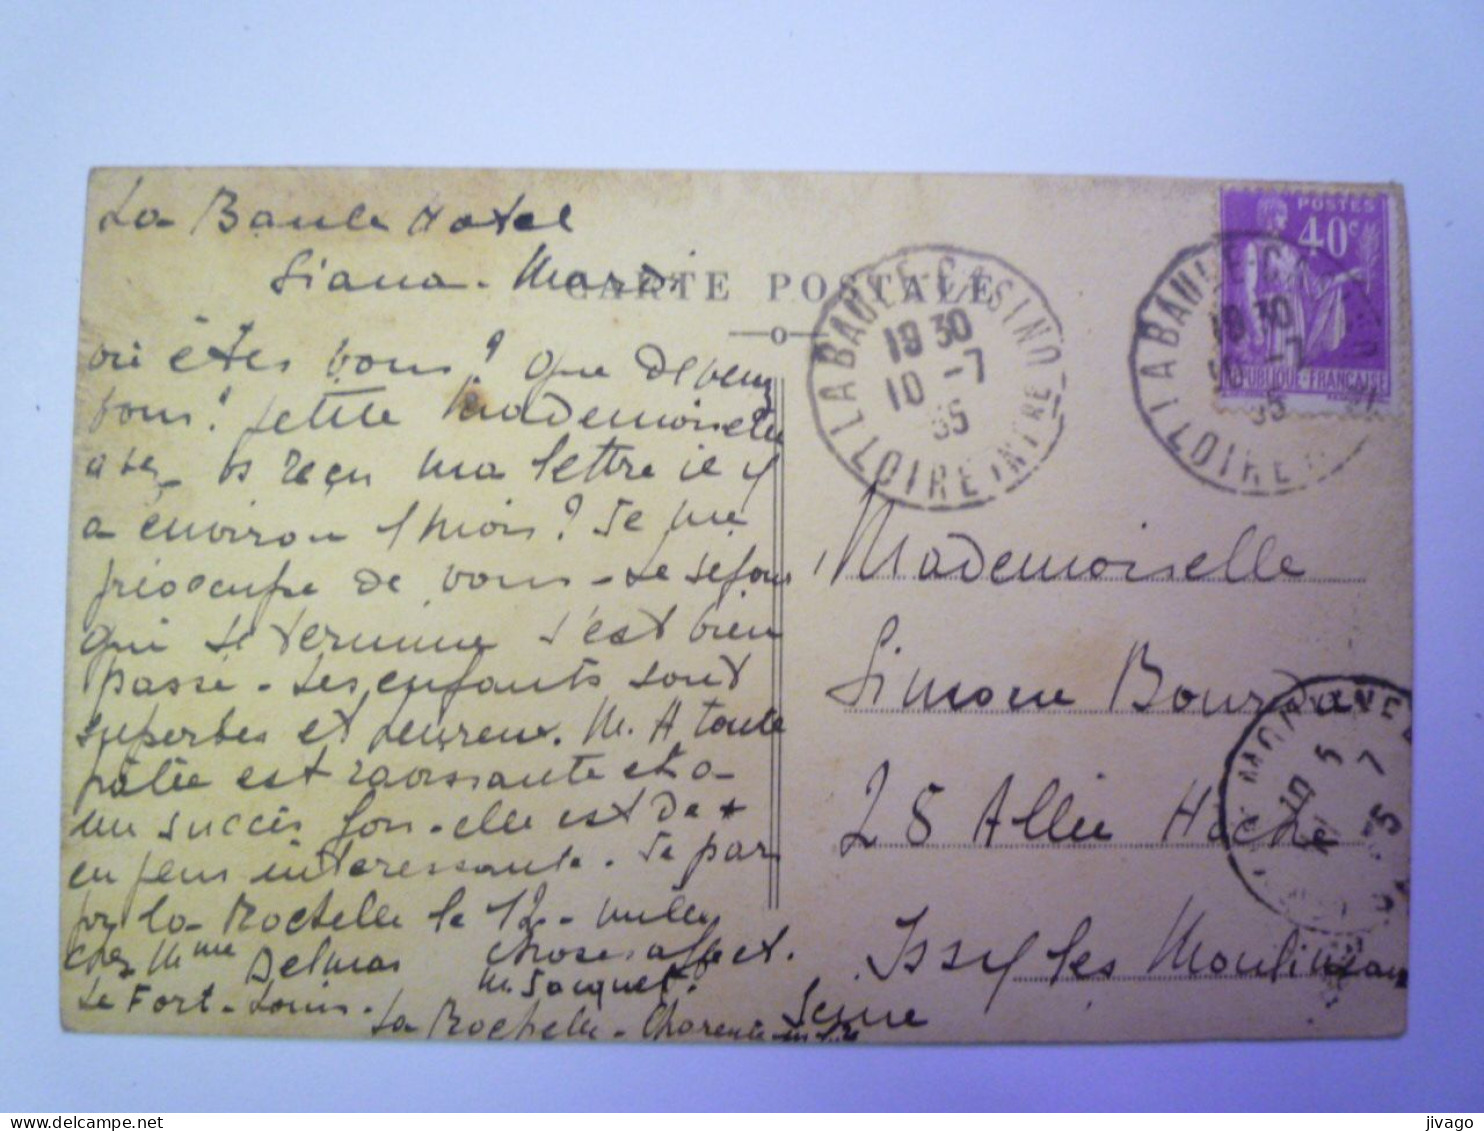 La Baule Hotel
Siana - Mardi
CARTE POSTALE
où êtes vous? Que devenez
vous? petite Mademoiselle
avez vs reçu ma lettre il y
a environ 1 mois? Je me
préoccupe de vous - Le séjour
qui se termine s'est bien
passé - Les enfants sont
superbes et heureux. M. A toute
pâlie est ravissante et a
un succès fou - elle est de +
en plus intéressante. Je pars
pr la Rochelle le 12 - mille
choses affect.
M. Jacquet.
chez Mme Delmas
Le Fort-Louis -
La Rochelle - Charente infre
LA BAULE-CASINO
18 30
10 -7
35
LOIRE INFRE
LA BAULE-CASINO
18 30
10 -7
35
LOIRE
POSTES
40c
REPUBLIQUE-FRANÇAISE
Mademoiselle
Simone Bourdon
28 Allée Hoche
Issy les Moulineaux
Seine
jivago